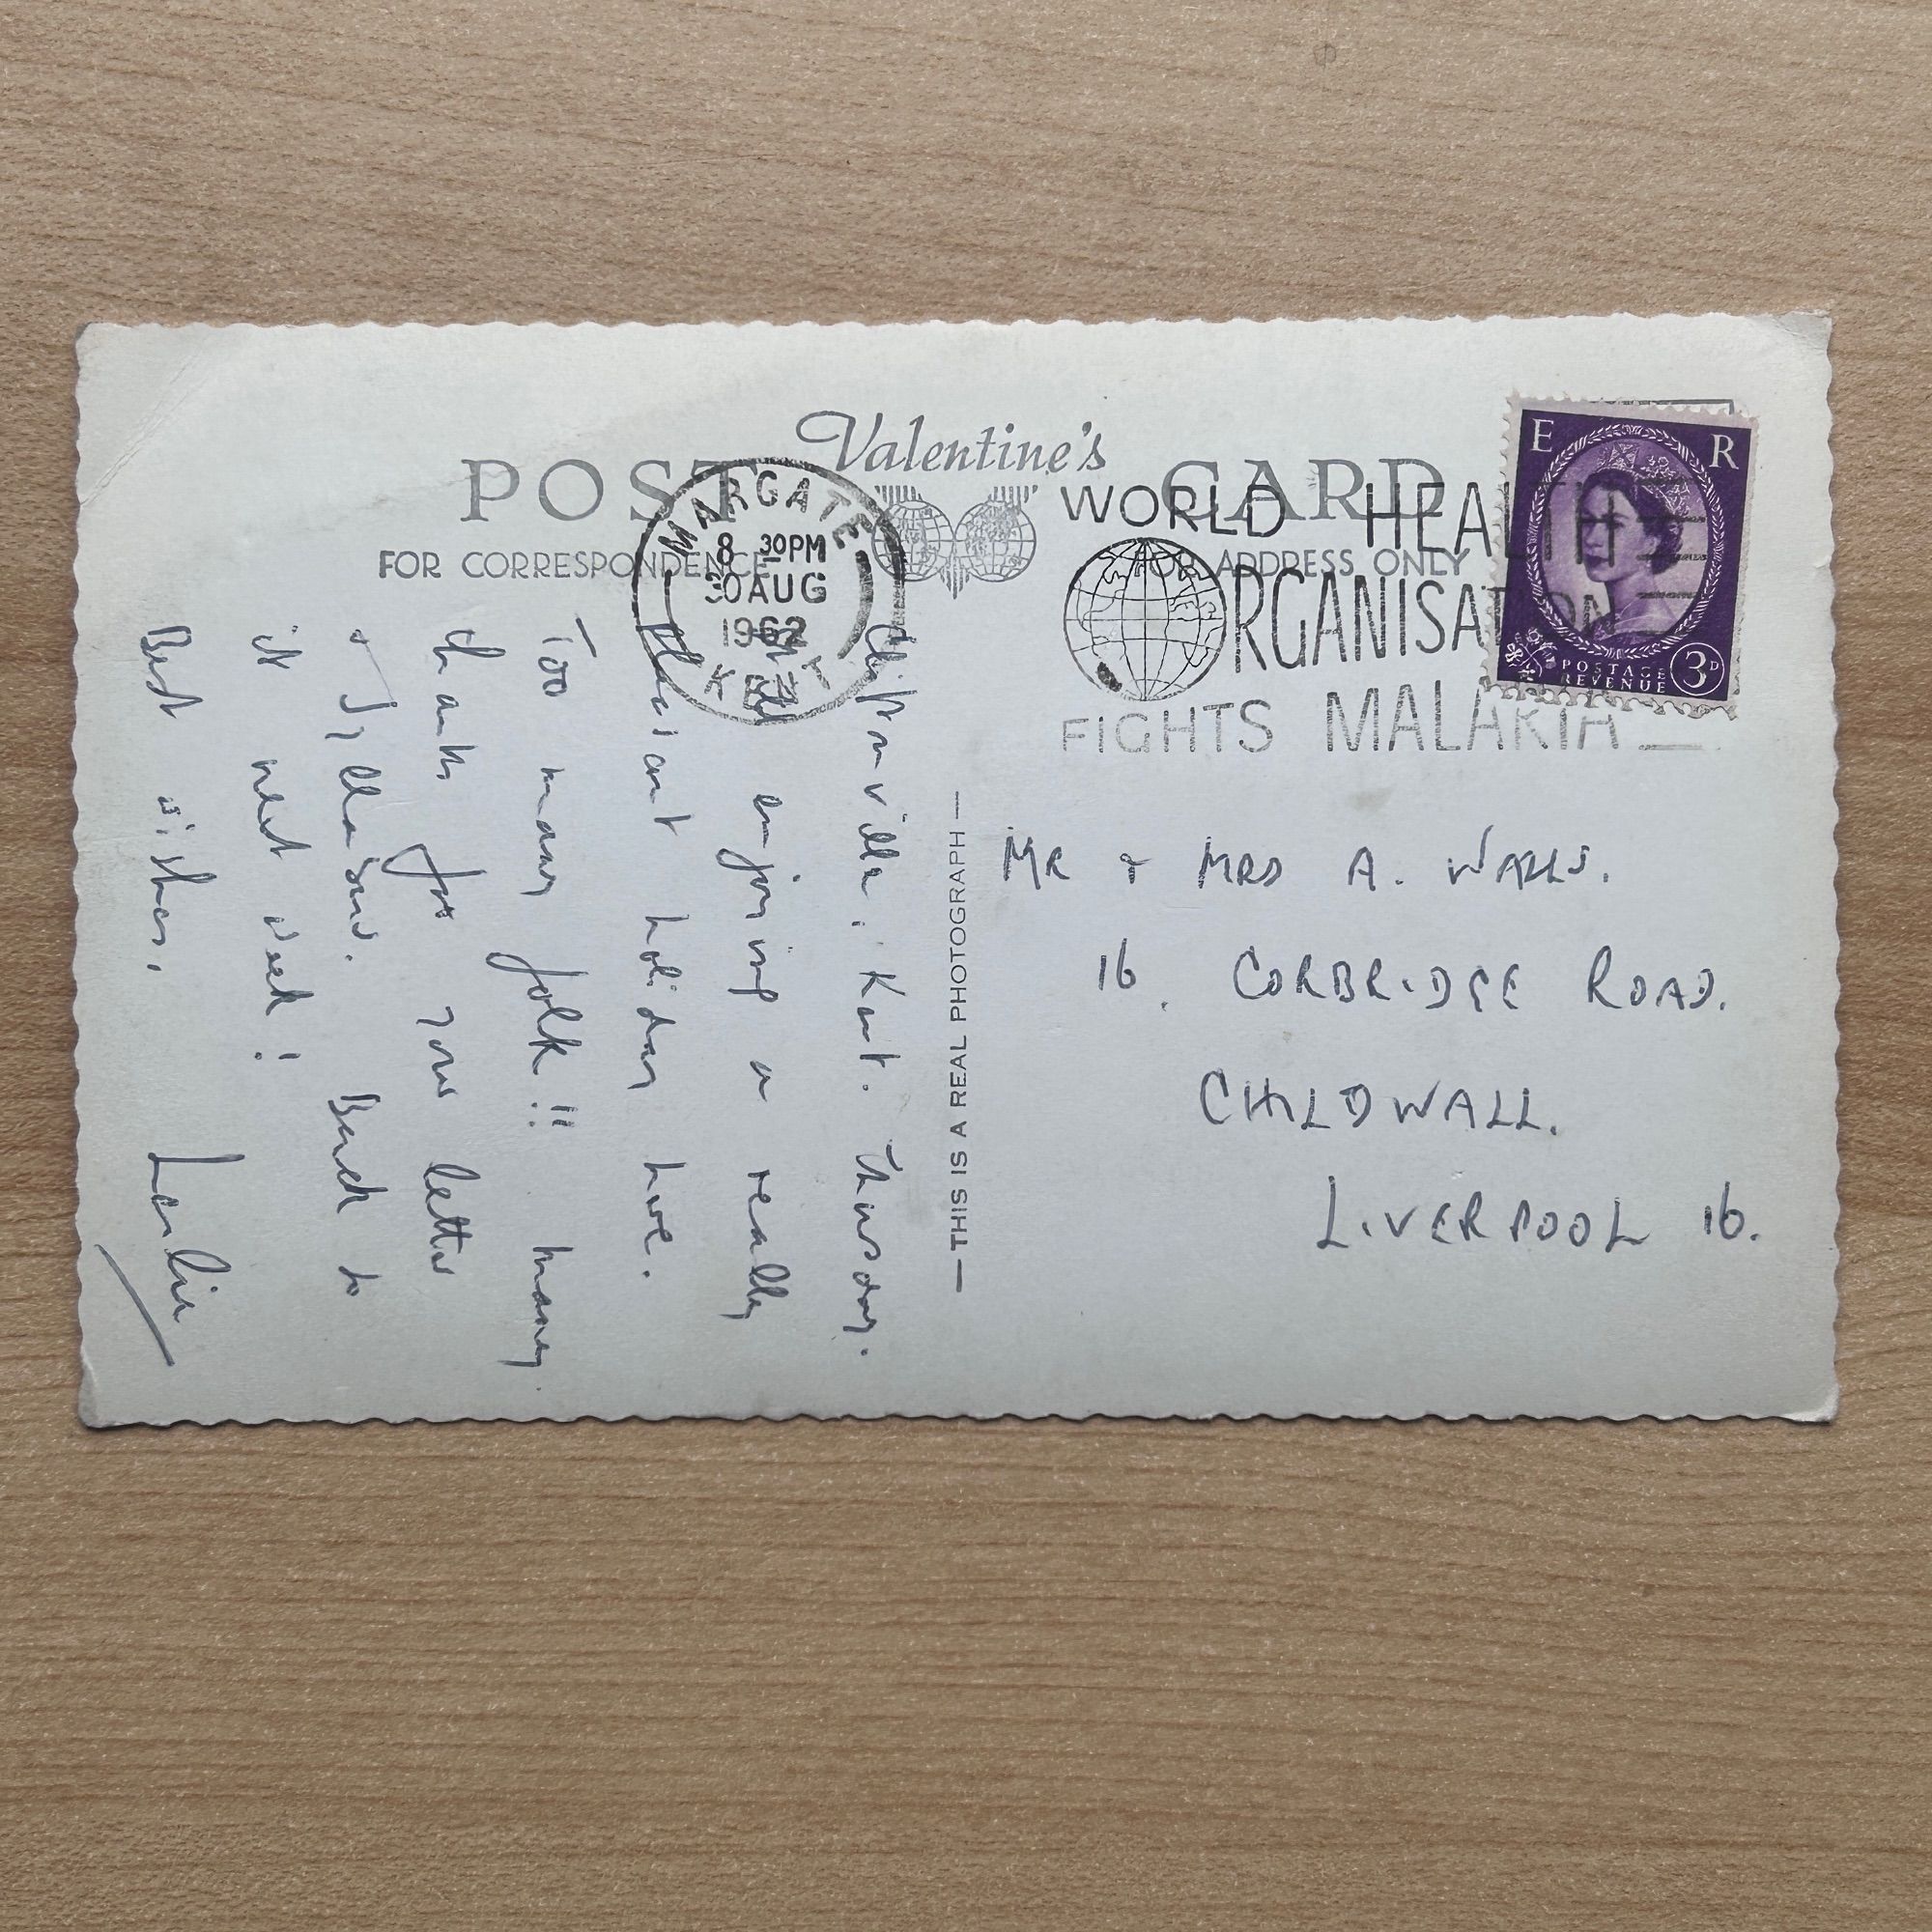 Valentine's
POST CARD
FOR CORRESPONDENCE
FOR ADDRESS ONLY
MARGATE
8 30PM
30 AUG
1962
KENT
WORLD HEALTH
ORGANISATION
FIGHTS MALARIA
E R
POSTAGE
REVENUE
3D
Cliftonville, Kent. Thursday.
enjoying a really
pleasant holiday here.
Too many folk!! many
thanks for your letter
& Back to
it next week!
Best wishes,
Leslie
— THIS IS A REAL PHOTOGRAPH —
MR & MRS A. WALLS.
16, CORBRIDGE ROAD.
CHILDWALL.
LIVERPOOL 16.